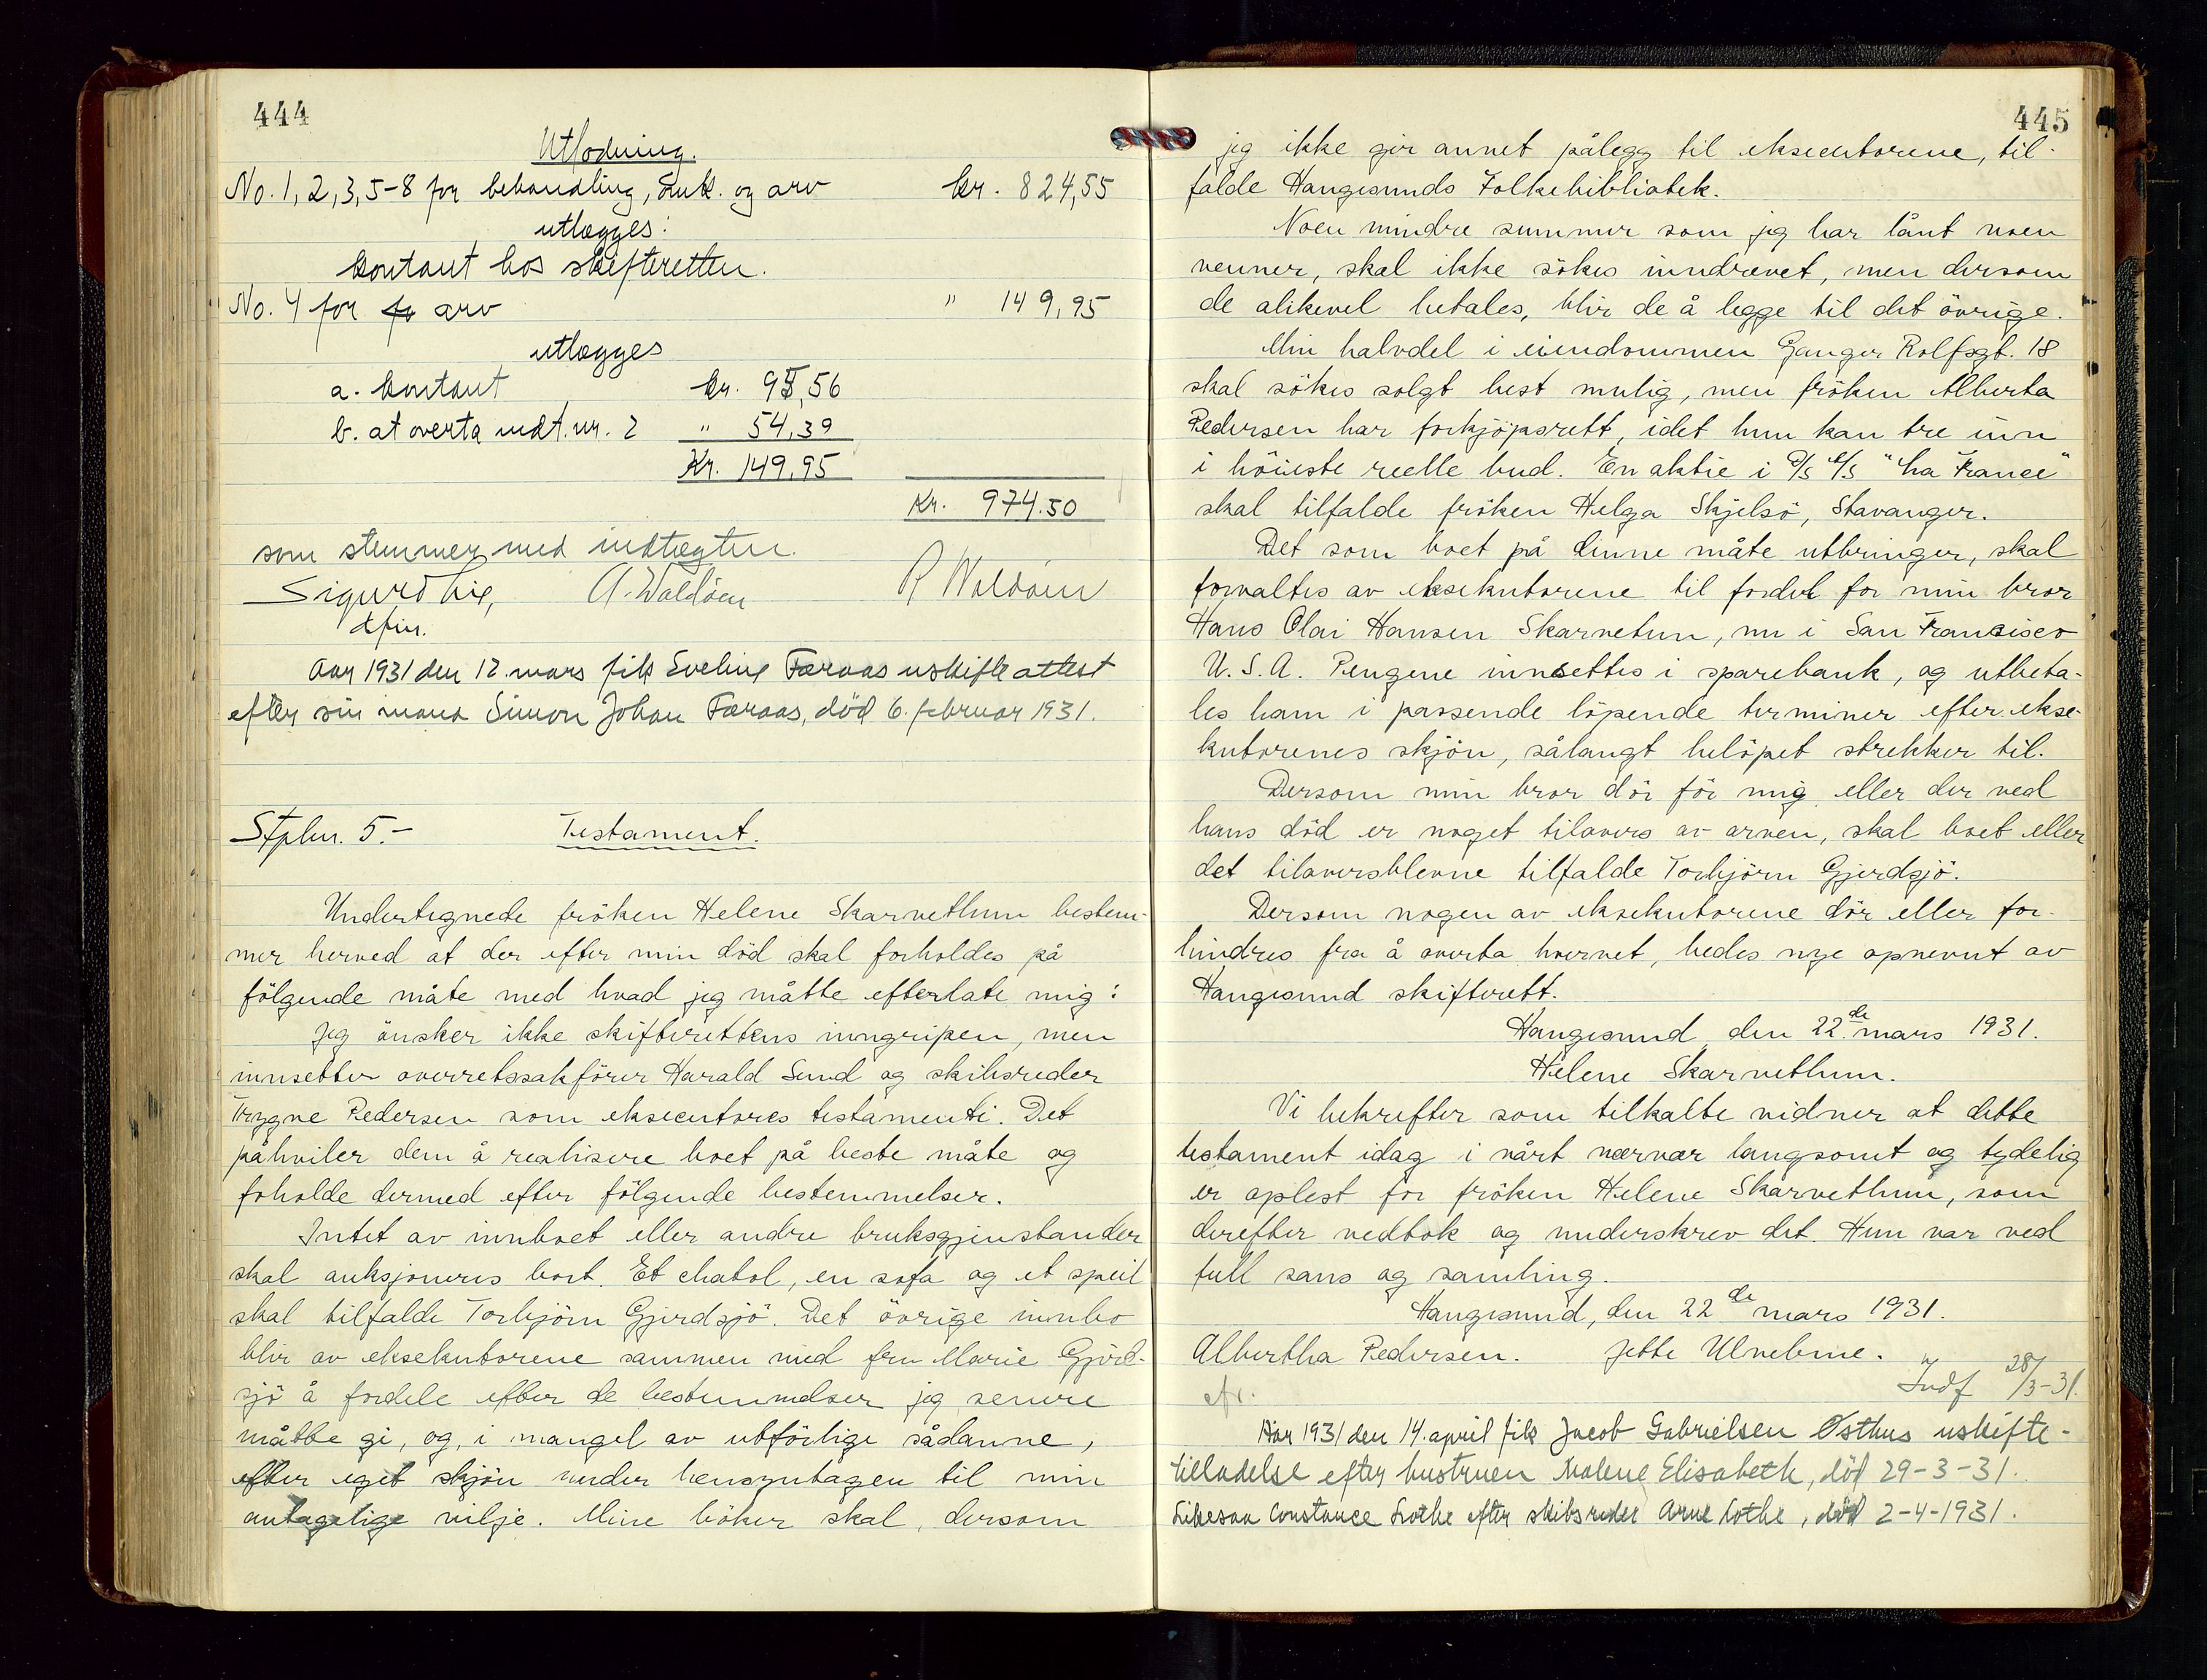 444
Utlodning.
No. 1, 2, 3, 5-8 for behandling, omk. og arv kr. 824,55
utlægges:
kontant hos skifteretten.
No. 4 for fo arv " 149,95
utlægges
a. kontant kr. 95,56
b. at overta indt. nr. 2 " 54,39
Kr. 149,95
Kr. 974.50
som stemmer med indtægten.
Sigurd Lie, A. Waldøen R Waldøen
dfm.
Aar 1931 den 12. mars fik Eveline Færaas uskifteattest
efter sin mand Simon Johan Færaas, död 6. februar 1931.
Stplm. 5.- Testament.
Undertegnede fröken Helene Skarvethun bestem-
mer herved at der efter min död skal forholdes på
fölgende måte med hvad jeg måtte efterlate mig:
Jeg önsker ikke skifterettens inngripen, men
innsetter overretssakförer Harald Sund og skibsreder
Trygve Pedersen som eksecutores testamenti. Det
påhviler dem å realisere boet på beste måte og
foholde dermed efter fölgende bestemmelser.
Intet av innboet eller andre bruksgjenstander
skal auksjoneres bort. Et chatol, en sofa og et speil
skal tilfalde Torbjörn Gjerdsjö. Det övrige innbo
blir av eksekutorene sammen med fru Marie Gjerd-
sjö å fordele efter de bestemmelser jeg senere
måtte gi, og, i mangel av utförlige sådanne,
efter eget skjön under hensyntagen til min
antagelige vilje. Mine böker skal, dersom
445
jeg ikke gir annet pålegg til eksecutorene, til-
falde Haugesunds Folkebibliotek.
Noen mindre summer som jeg har lånt noen
venner, skal ikke sökes inndrevet, men dersom
de alikevel betales, blir de å legge til det övrige.
Min halvdel i eiendommen Ganger Rolfsgt. 18
skal sökes solgt best mulig, men fröken Alberta
Pedersen har forkjöpsrett, idet hun kan tre inn
i höieste reelle bud. En aktie i D/S A/S "La France"
skal tilfalde fröken Helga Skjelsö, Stavanger.
Det som boet på denne måte utbringer, skal
forvaltes av eksekutorene til fordel for min bror
Hans Olai Hansen Skarvetun, nu i San Francisco
U.S.A. Pengene innsettes i sparebank, og utbeta-
les ham i passende löpende terminer efter ekse-
kutorenes skjön, sålangt belöpet strekker til.
Dersom min bror dör för mig eller der ved
hans död er noget tilovers av arven, skal boet eller
det tiloversblevne tilfalde Torbjörn Gjerdsjö.
Dersom nogen av eksekutorene dör eller for-
hindres fra å overta hvervet, bedes nye opnevnt av
Haugesund skifterett.
Haugesund den 22de mars 1931.
Helene Skarvethun.
Vi bekrefter som tilkalte vidner at dette
testament idag i vårt nærvær langsomt og tydelig
er oplest for fröken Helene Skarvethun, som
derefter vedtok og underskrev det. Hun var ved
full sans og samling.
Haugesund, den 22de mars 1931.
Albertha Pedersen. Jette Ulvebme.
Indf 28/3-31.
Aar 1931 den 14. april fik Jacob Gabrielsen Østhus uskifte-
tilladelse efter hustruen Malene Elisabeth, död 29-3-31.
Likesaa Constance Lothe efter skibsreder Arne Lothe, död 2-4-1931.